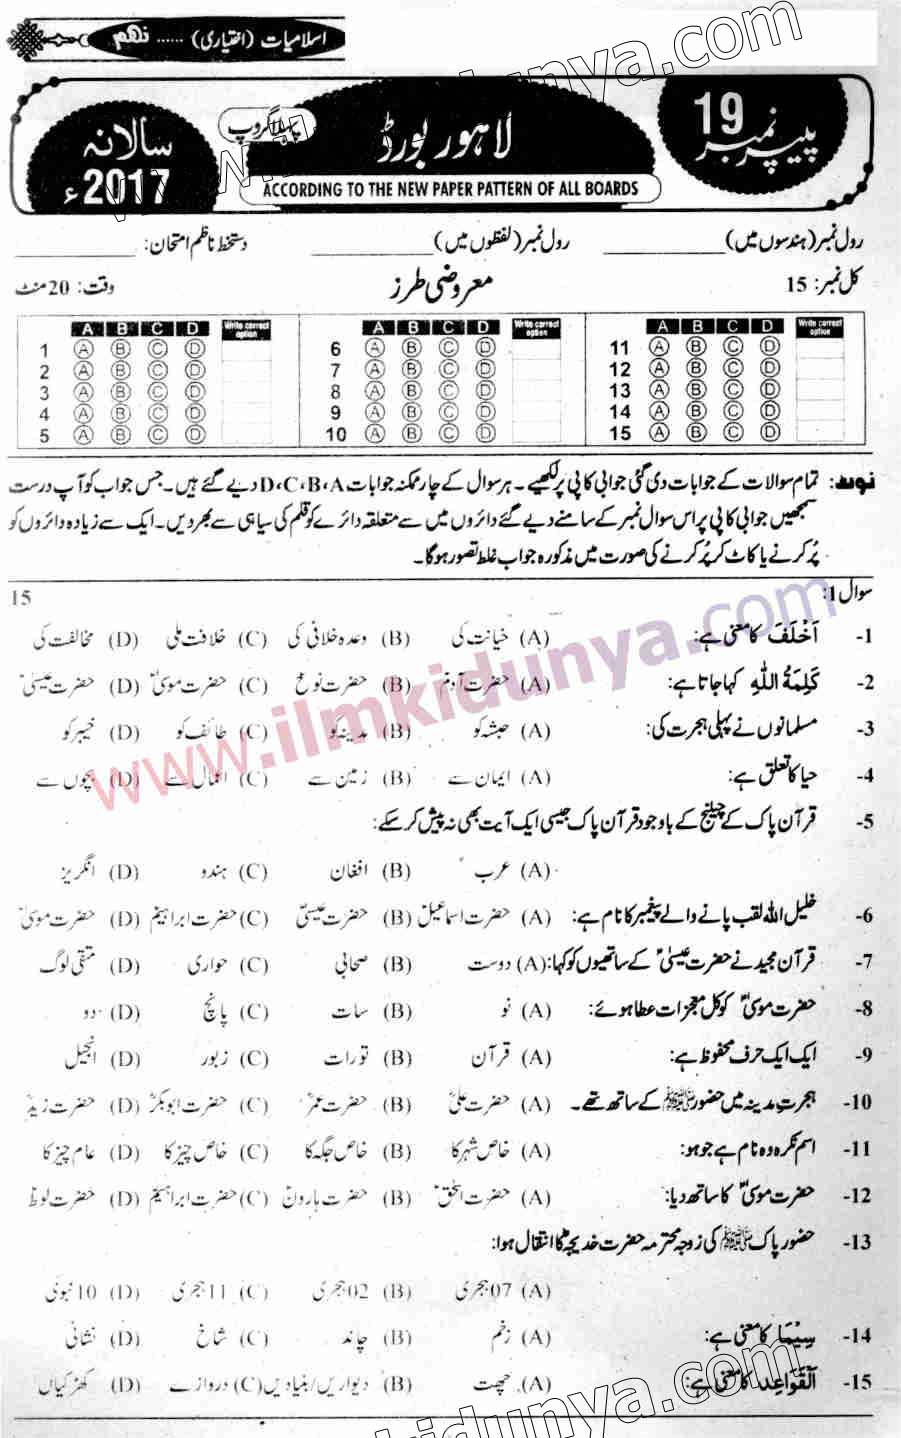 اسلامیات (اختیاری) ...... نہم
پیپر نمبر 19
لاہور بورڈ
پہلا گروپ
سالانہ 2017ء
ACCORDING TO THE NEW PAPER PATTERN OF ALL BOARDS
رول نمبر (ہندسوں میں) ____________ رول نمبر (لفظوں میں) ____________ دستخط ناظم امتحان: ____________
کل نمبر: 15 معروضی طرز وقت: 20 منٹ
A B C D Write correct option A B C D Write correct option A B C D Write correct option
1 A B C D 6 A B C D 11 A B C D
2 A B C D 7 A B C D 12 A B C D
3 A B C D 8 A B C D 13 A B C D
4 A B C D 9 A B C D 14 A B C D
5 A B C D 10 A B C D 15 A B C D
نوٹ: تمام سوالات کے جوابات دی گئی جوابی کاپی پر لکھیے۔ ہر سوال کے چار ممکنہ جوابات D،C،B،A دیے گئے ہیں۔ جس جواب کو آپ درست
سمجھیں جوابی کاپی پر اس سوال نمبر کے سامنے دیے گئے دائروں میں سے متعلقہ دائرے کو قلم کی سیاہی سے بھر دیں۔ ایک سے زیادہ دائروں کو
پُر کرنے یا کاٹ کر پُر کرنے کی صورت میں مذکورہ جواب غلط تصور ہوگا۔
سوال 1: 15
1- اَخْلَفَ کا معنی ہے: (A) خیانت کی (B) وعدہ خلافی کی (C) خلافت ملی (D) مخالفت کی
2- كَلِمَةُ اللّٰهِ کہا جاتا ہے: (A) حضرت آدمؑ (B) حضرت نوحؑ (C) حضرت موسیٰؑ (D) حضرت عیسیٰؑ
3- مسلمانوں نے پہلی ہجرت کی: (A) حبشہ کو (B) مدینہ کو (C) طائف کو (D) خیبر کو
4- حیا کا تعلق ہے: (A) ایمان سے (B) زمین سے (C) اعمال سے (D) بچوں سے
5- قرآن پاک کے چیلنج کے باوجود قرآن پاک جیسی ایک آیت بھی نہ پیش کر سکے:
(A) عرب (B) افغان (C) ہندو (D) انگریز
6- خلیل اللہ لقب پانے والے پیغمبر کا نام ہے: (A) حضرت اسماعیلؑ (B) حضرت عیسیٰؑ (C) حضرت ابراہیمؑ (D) حضرت موسیٰؑ
7- قرآن مجید نے حضرت عیسیٰؑ کے ساتھیوں کو کہا: (A) دوست (B) صحابی (C) حواری (D) متقی لوگ
8- حضرت موسیٰؑ کو کل معجزات عطا ہوئے: (A) نو (B) سات (C) پانچ (D) دو
9- ایک ایک حرف محفوظ ہے: (A) قرآن (B) تورات (C) زبور (D) انجیل
10- ہجرتِ مدینہ میں حضورﷺ کے ساتھ تھے۔ (A) حضرت علیؓ (B) حضرت عمرؓ (C) حضرت ابوبکرؓ (D) حضرت زیدؓ
11- اسم نکرہ وہ نام ہے جو ہو: (A) خاص شہر کا (B) خاص جگہ کا (C) خاص چیز کا (D) عام چیز کا
12- حضرت موسیٰؑ کا ساتھ دیا: (A) حضرت اسحٰقؑ (B) حضرت ہارونؑ (C) حضرت ابراہیمؑ (D) حضرت لوطؑ
13- حضور پاکﷺ کی زوجہ محترمہ حضرت خدیجہؓ کا انتقال ہوا:
(A) 07 ہجری (B) 02 ہجری (C) 11 ہجری (D) 10 نبوی
14- سِيْمَا کا معنی ہے: (A) زخم (B) چاند (C) شاخ (D) نشانی
15- اَلْقَوَاعِد کا معنی ہے: (A) چھت (B) دیواریں/بنیادیں (C) دروازے (D) کھڑکیاں
www.ilmkidunya.com